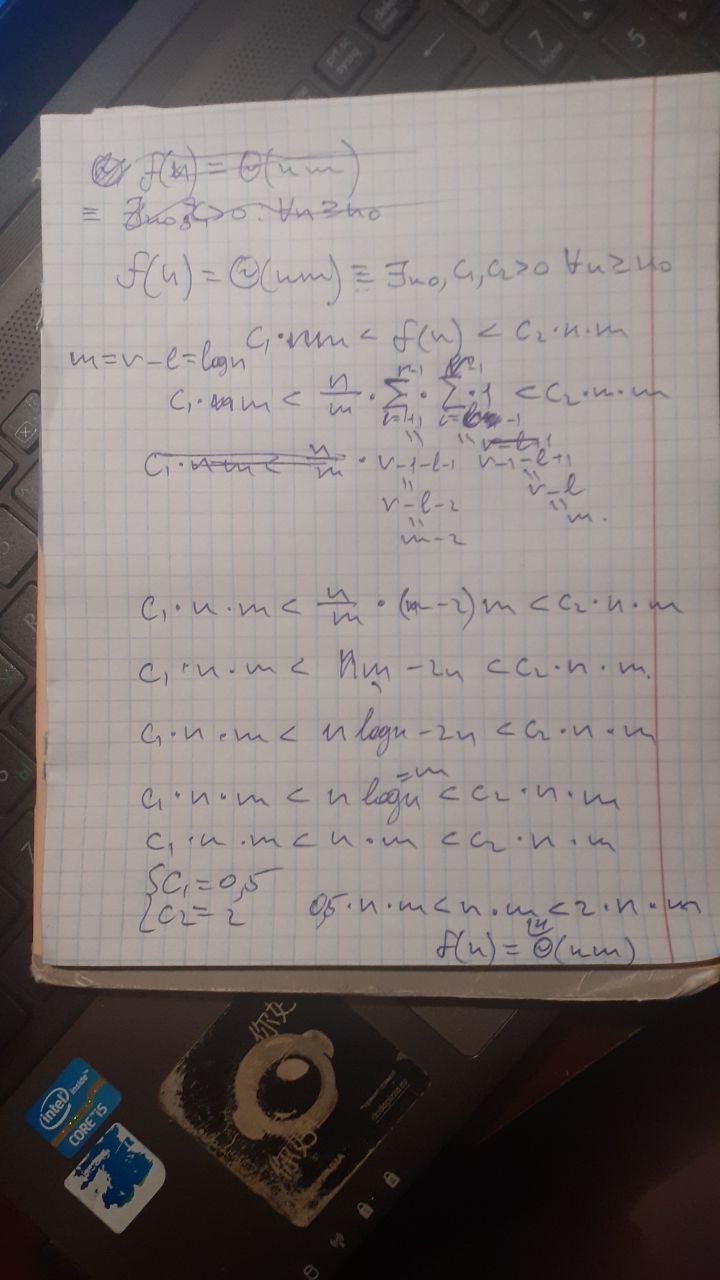 f(n) = Θ(nm)
≡ ∃n₀, C>0 : ∀n≥n₀
f(n) = Θ(nm) ≡ ∃n₀, C₁, C₂>0 ∀n≥n₀
C₁·nm < f(n) < C₂·n·m
m=r-l=logn
C₁·nm < n/m · Σ · Σ·1 < C₂·n·m
r-1 r-1
i=l+1
C₁·nm < n/m · r-1-l-1 r-1-l+1
r-l-2 r-l
m-2 m.
C₁·n·m < n/m · (m-2)m < C₂·n·m
C₁·n·m < nm-2n < C₂·n·m.
C₁·n·m < n logn-2n < C₂·n·m
=m
C₁·n·m < n logn < C₂·n·m
C₁·n·m < n·m < C₂·n·m
{C₁=0,5
{C₂=2 0,5·n·m<n·m<2·n·m
f(n) = Θ(nm)
intel inside™
CORE™ i5
你好
你好